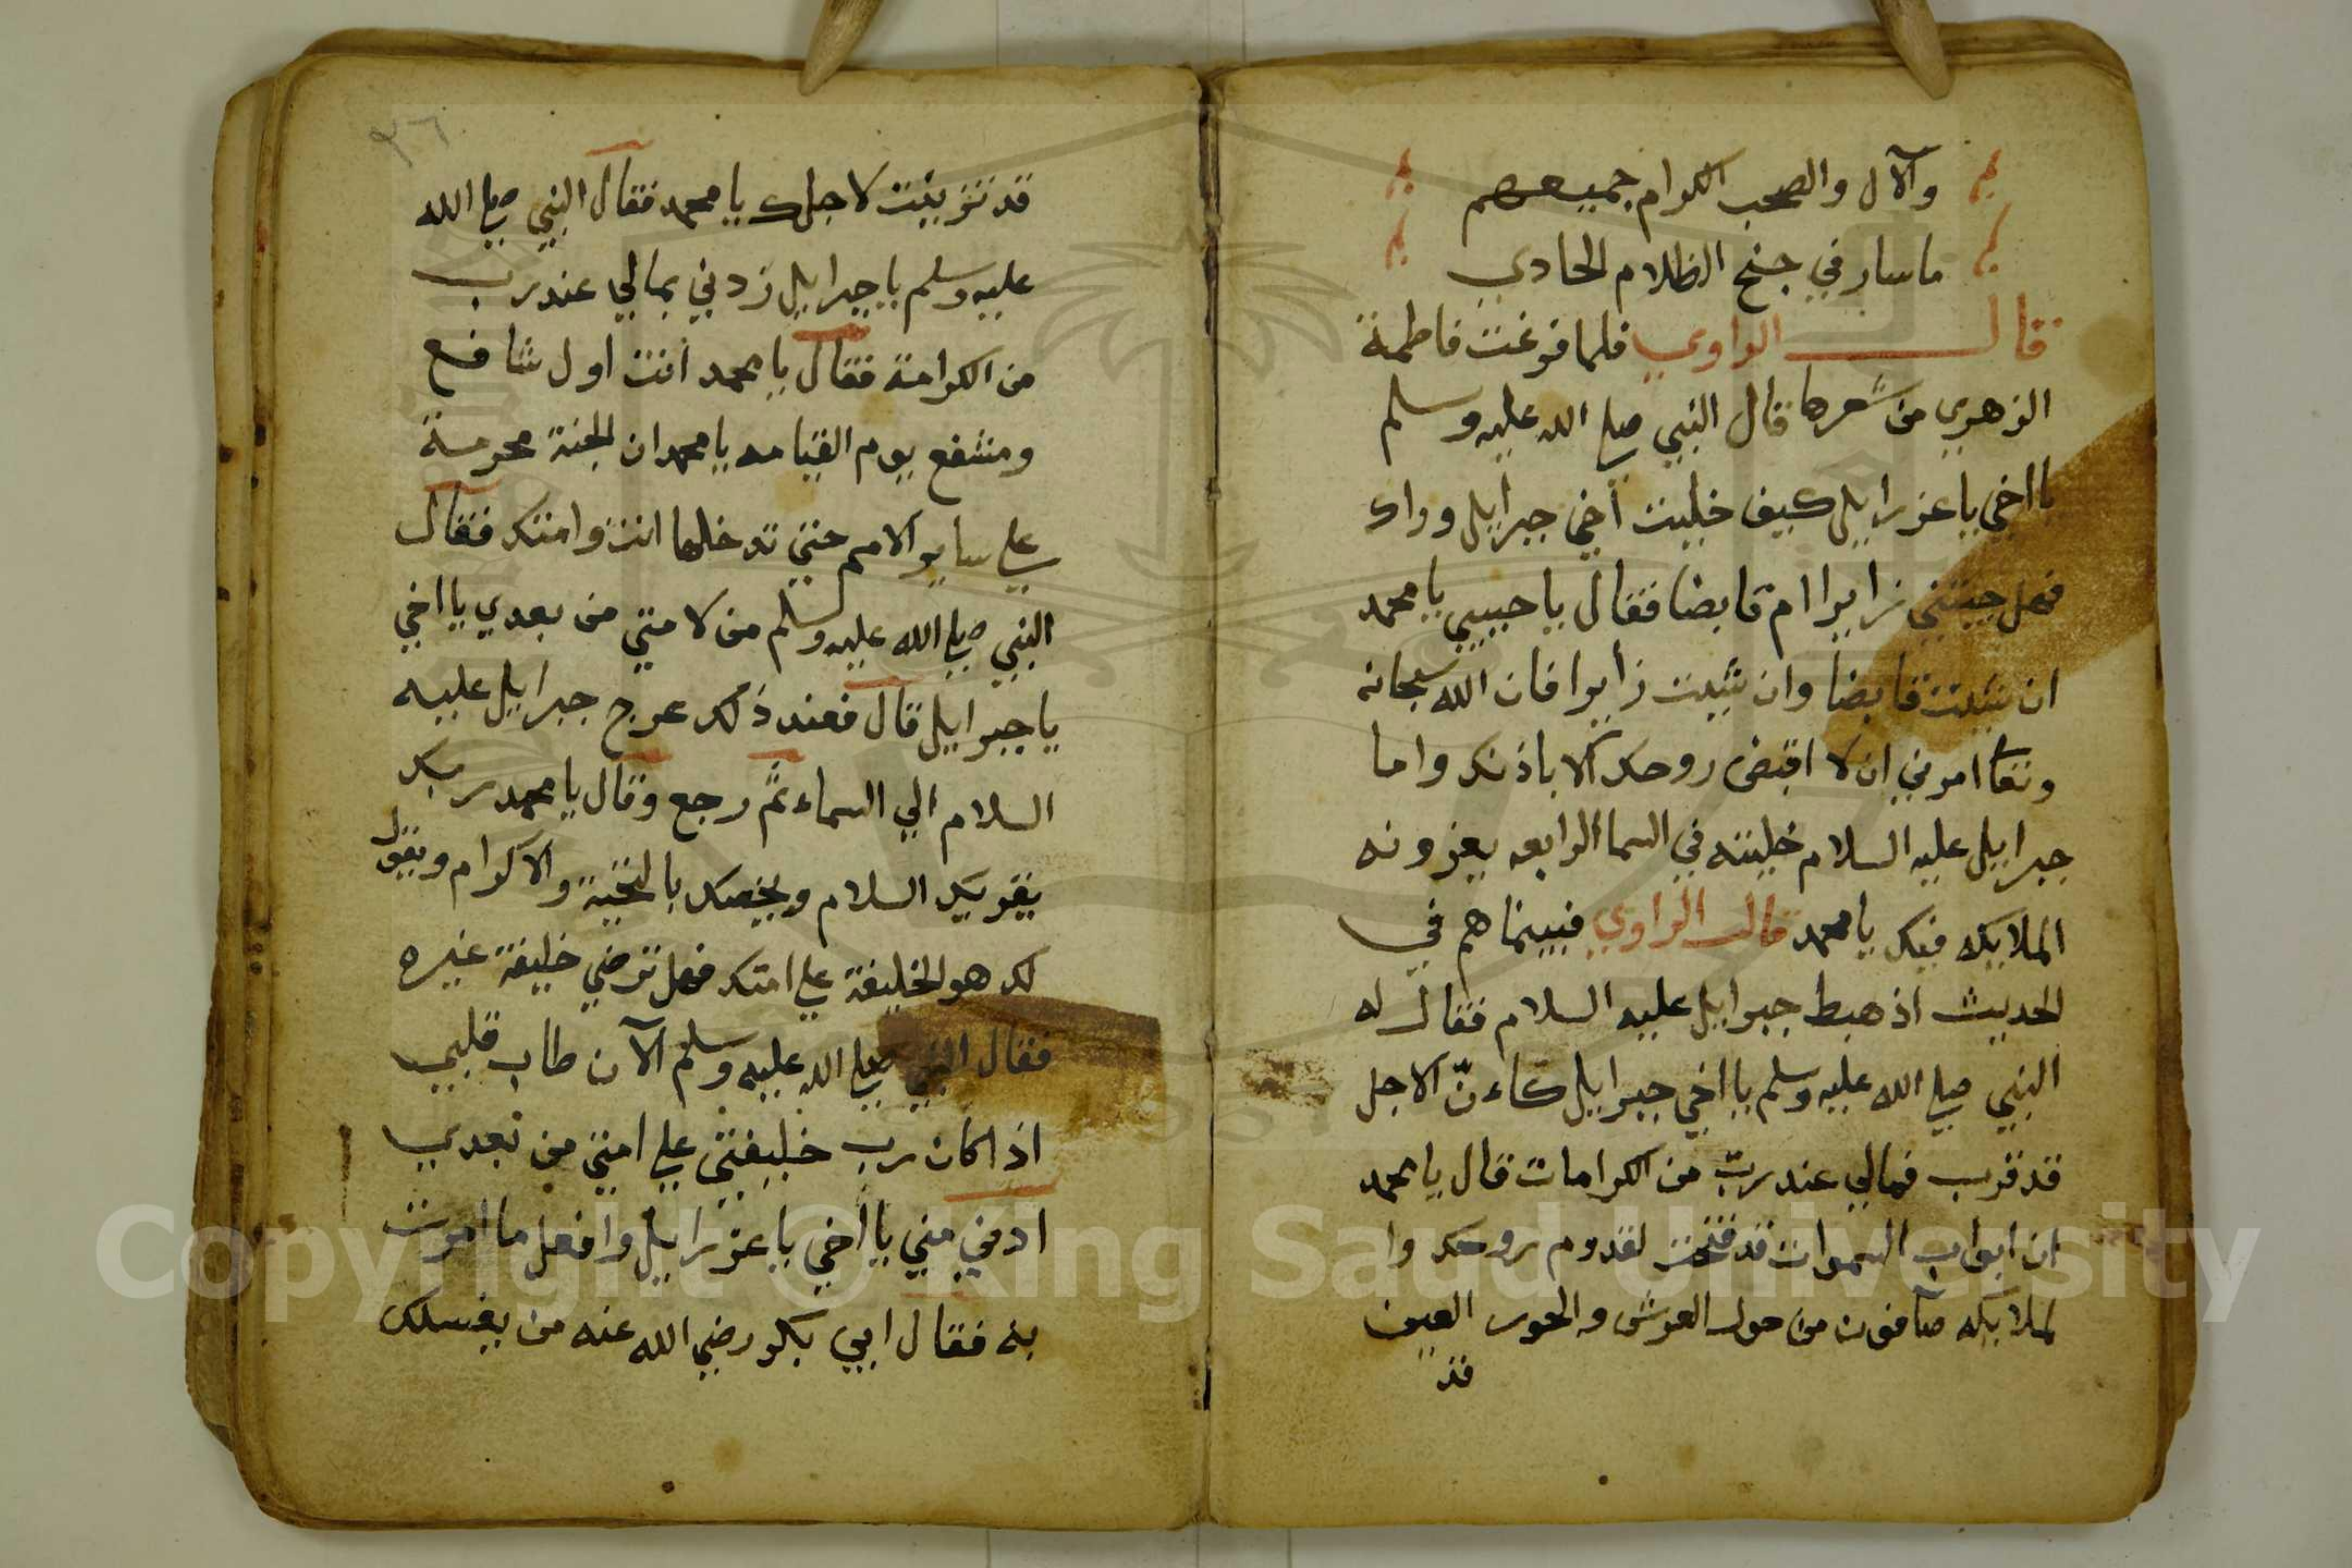 وآلال والصحب الكرام جميعهم
ماسار في جنح الظلام الحادي
قال الراوي فلما فرغت فاطمة
الزهري من شعرها قال النبي صلي الله عليه وسلم
يا اخي يا عزرايل كيف خليت أخي جبرايل وراك
فهل جيتني زايرا ام قابضا فقال يا حبيبي يا محمد
ان شيت قابضا وان شيت زايرا فان الله سبحانه
وتعا امرني ان لا اقبض روحك الا باذنك واما
جبرايل عليه السلام خليته في السما الرابعه يعزونه
الملايكه فيك يا محمد قال الراوي فبينما هم في
الحديث اذ هبط جبرايل عليه السلام فقال له
النبي صلي الله عليه وسلم يا اخي جبرايل كاءنّ الاجل
قد قرب فمالي عند ربّ من الكرامات قال يا محمد
ان ابواب السموات قد فتحت لقدوم روحك وا
لملايكه صآفون من حول العرش والحور العين
قد
٣٦
قد تزينت لاجلك يا محمد فقال النبي صلي الله
عليه وسلم يا جبرايل زدني بمالي عند رب
من الكرامة فقال يا محمد أنت اول شافع
ومشفع يوم القيامه يا محمد ان الجنة محرمة
علي ساير الامم حتي تدخلها انت وامتك فقال
النبي صلي الله عليه وسلم من لامتي من بعدي يا اخي
يا جبرايل قال فعند ذلك عرج جبرايل عليه
السلام الي السماء ثم رجع وقال يا محمد ربك
يقريك السلام ويخصك بالتحية والاكرام ويقول
لك هو الخليفة علي امتك فهل ترضي خليفة غيره
فقال النبي صلي الله عليه وسلم الآن طاب قلبي
اذا كان رب خليفتي علي امتي من بعدي
ادني مني يا أخي يا عزرايل وافعل ما امرت
به فقال ابي بكر رضي الله عنه من يغسلك
Copyright © King Saud University